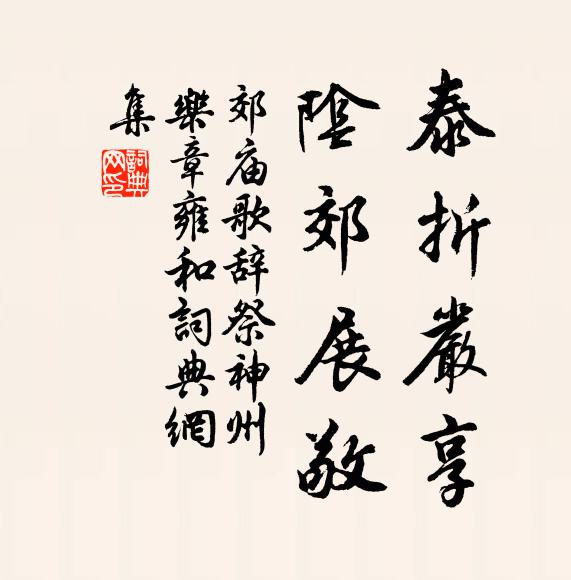 泰折嚴享
陰郊展敬
郊庙歌辞祭神州
樂章雍和詞典網
集
詞典网印